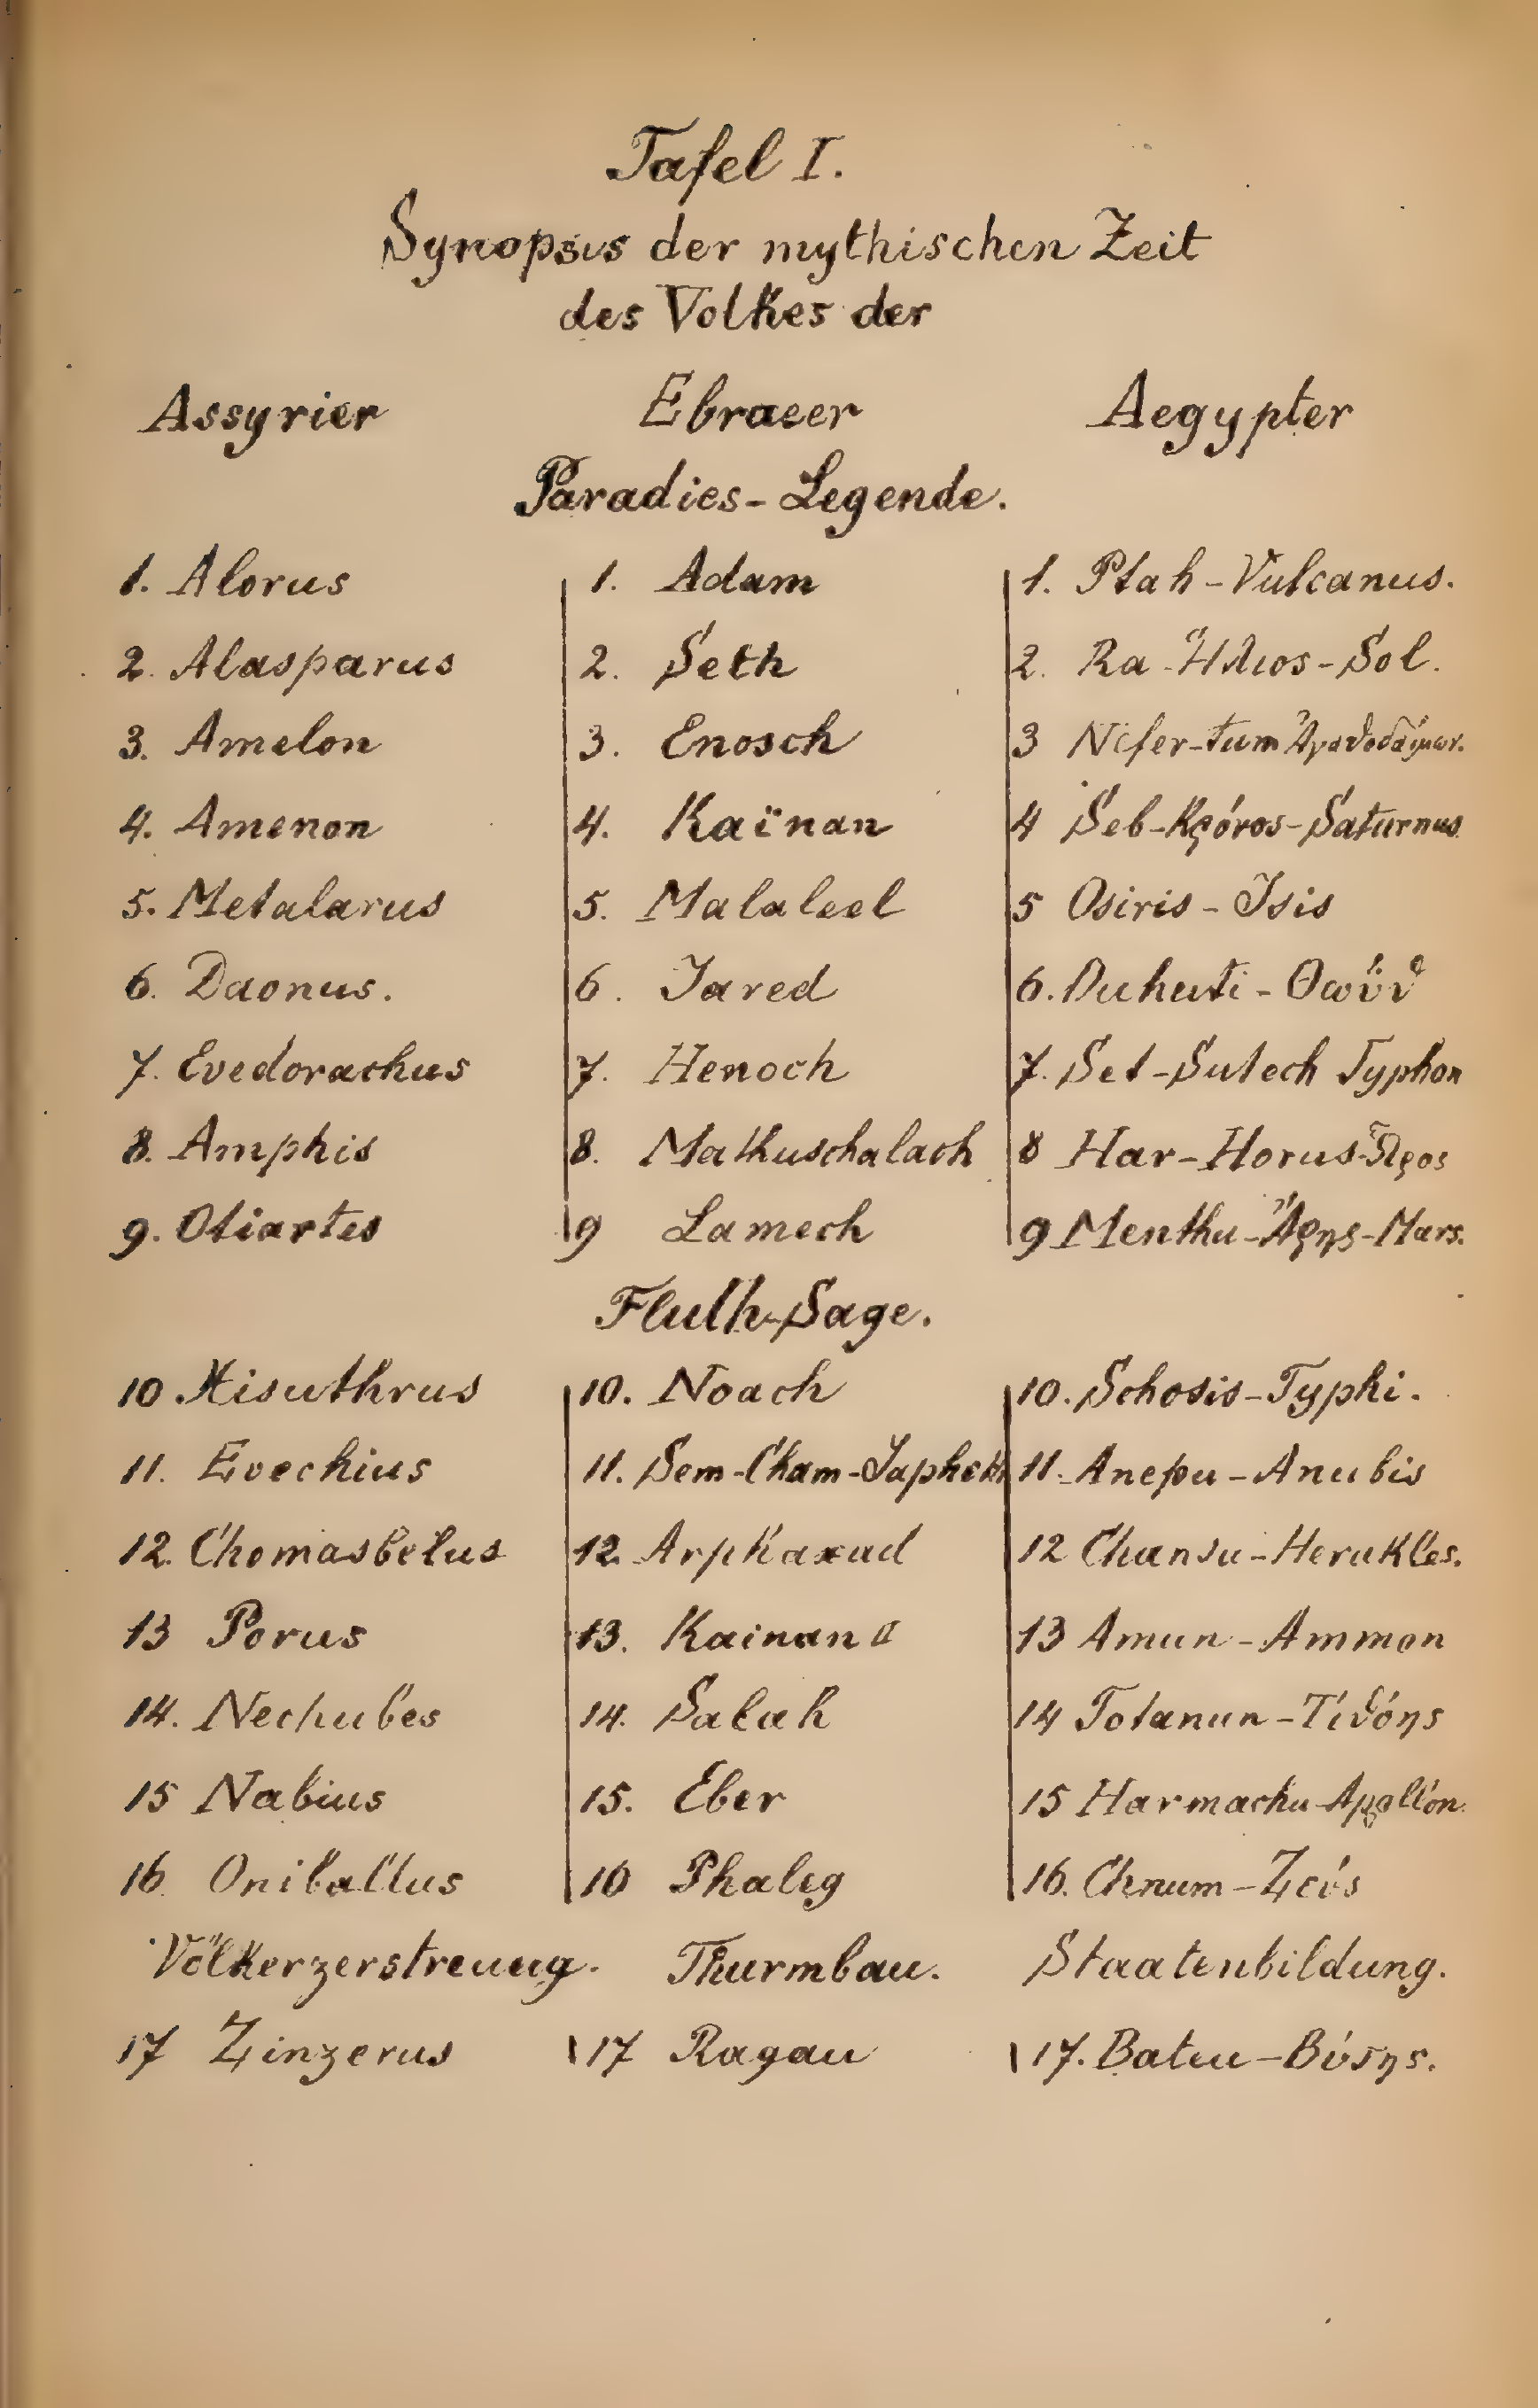 Tafel I.
Synopsis der mythischen Zeit
des Volkes der
Assyrier Ebraeer Aegypter
Paradies-Legende.
1. Alorus 1. Adam 1. Ptah-Vulcanus.
2. Alasparus 2. Seth 2. Ra-Ἥλιος-Sol.
3. Amelon 3. Enosch 3 Nefer-tum Ἀγαθοδαίμων.
4. Amenon 4. Kaïnan 4 Seb-Κρόνος-Saturnus
5. Metalarus 5. Malaleel 5 Osiris-Isis
6. Daonus. 6. Jared 6. Duhuti-Θωΰθ
7. Evedorachus 7. Henoch 7. Set-Sutech Typhon
8. Amphis 8. Mathuschalach 8 Har-Horus-Ὧρος
9. Otiartes 9 Lamech 9 Menthu-Ἄρης-Mars.
Fluth-Sage.
10. Xisuthrus 10. Noach 10. Schosis-Typhi.
11. Evechius 11. Sem-Cham-Japheth 11. Anepu-Anubis
12. Chomasbelus 12. Arphaxad 12 Chansu-Herakles.
13 Porus 13. Kainan 13 Amun-Ammon
14. Nechubes 14. Salah 14 Totanun-Τιθόης
15 Nabius 15. Eber 15 Harmachu-Apollon.
16 Oniballus 16 Phaleg 16. Chnum-Ζεύς
Völkerzerstreuung. Thurmbau. Staatenbildung.
17 Zinzerus 17 Ragau 17. Batau-Βύτης.